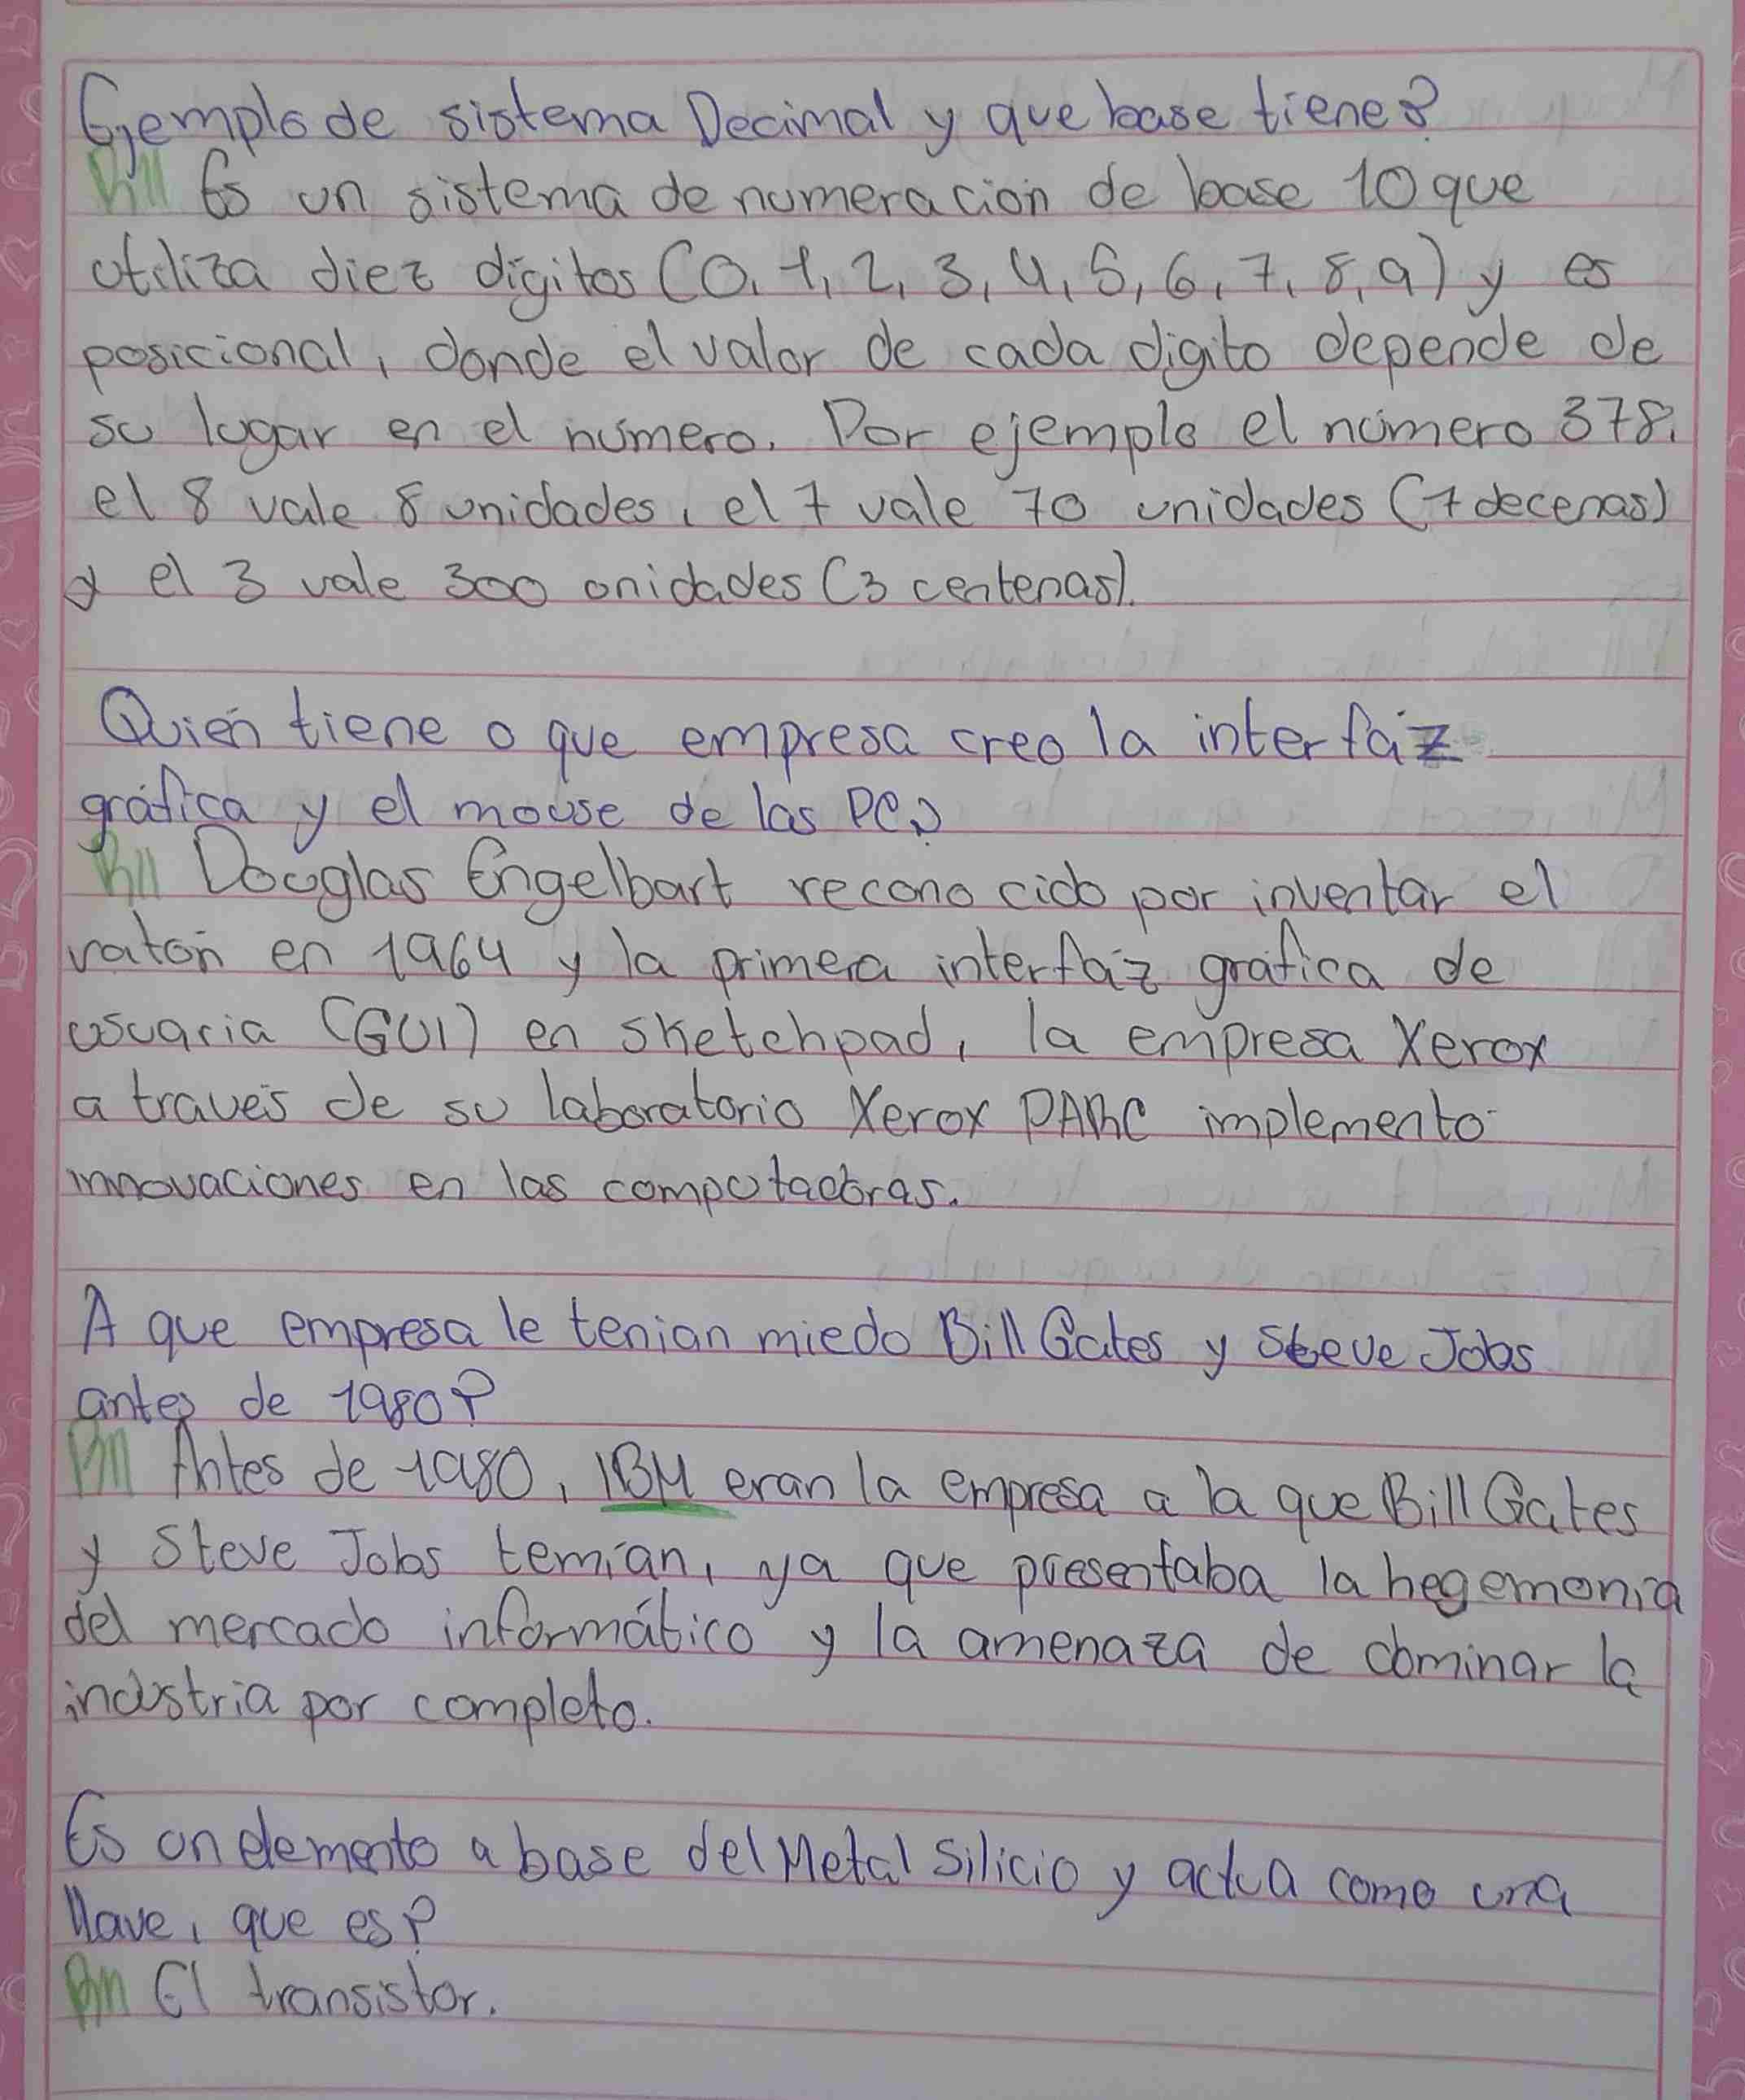 Ejemplo de sistema Decimal y que base tiene?
R// Es un sistema de numeración de base 10 que
utiliza diez dígitos (0, 1, 2, 3, 4, 5, 6, 7, 8, 9) y es
posicional, donde el valor de cada digito depende de
su lugar en el número. Por ejemplo el número 378,
el 8 vale 8 unidades, el 7 vale 70 unidades (7 decenas)
y el 3 vale 300 unidades (3 centenas).
Quién tiene o que empresa creo la interfaz
gráfica y el mouse de las PC?
R// Douglas Engelbart reconocido por inventar el
ratón en 1964 y la primera interfaz grafica de
usuaria (GUI) en sketchpad, la empresa Xerox
a través de su laboratorio Xerox PARC implemento
innovaciones en las computadoras.
A que empresa le tenian miedo Bill Gates y Steve Jobs
antes de 1980?
R// Antes de 1980, IBM eran la empresa a la que Bill Gates
y Steve Jobs temían, ya que presentaba la hegemonía
del mercado informático y la amenaza de dominar la
industria por completo.
Es un elemento a base del Metal Silicio y actua como una
llave, que es?
R// El transistor.